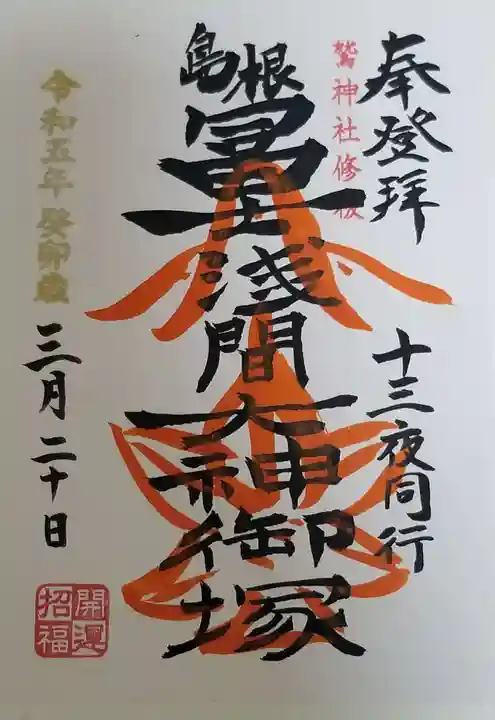 奉登拝
十三夜同行
鷲神社修祓
島根
冨士浅間大神御塚
令和五年 癸卯歳
三月二十日
開運
招福